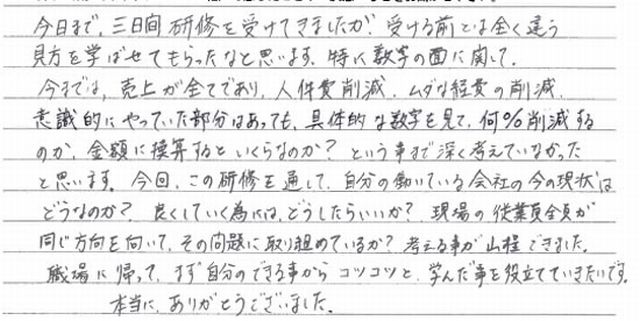 今日まで、三日間研修を受けてきましたが、受ける前とは全く違う
見方を学ばせてもらったなと思います。特に数字の面に関して、
今までは、売上が全てであり、人件費削減、ムダな経費の削減、
意識的にやっていた部分はあっても、具体的な数字を見て、何%削減する
のか、金額に換算するといくらなのか?という事まで深く考えていなかった
と思います。今回、この研修を通して、自分の働いている会社の今の現状は
どうなのか?良くしていく為には、どうしたらいいか?現場の従業員全員が
同じ方向を向いて、その問題に取り組めているか?考える事が山程できました。
職場に帰って、まず自分のできる事からコツコツと、学んだ事を役立てていきたいです。
本当に、ありがとうございました。